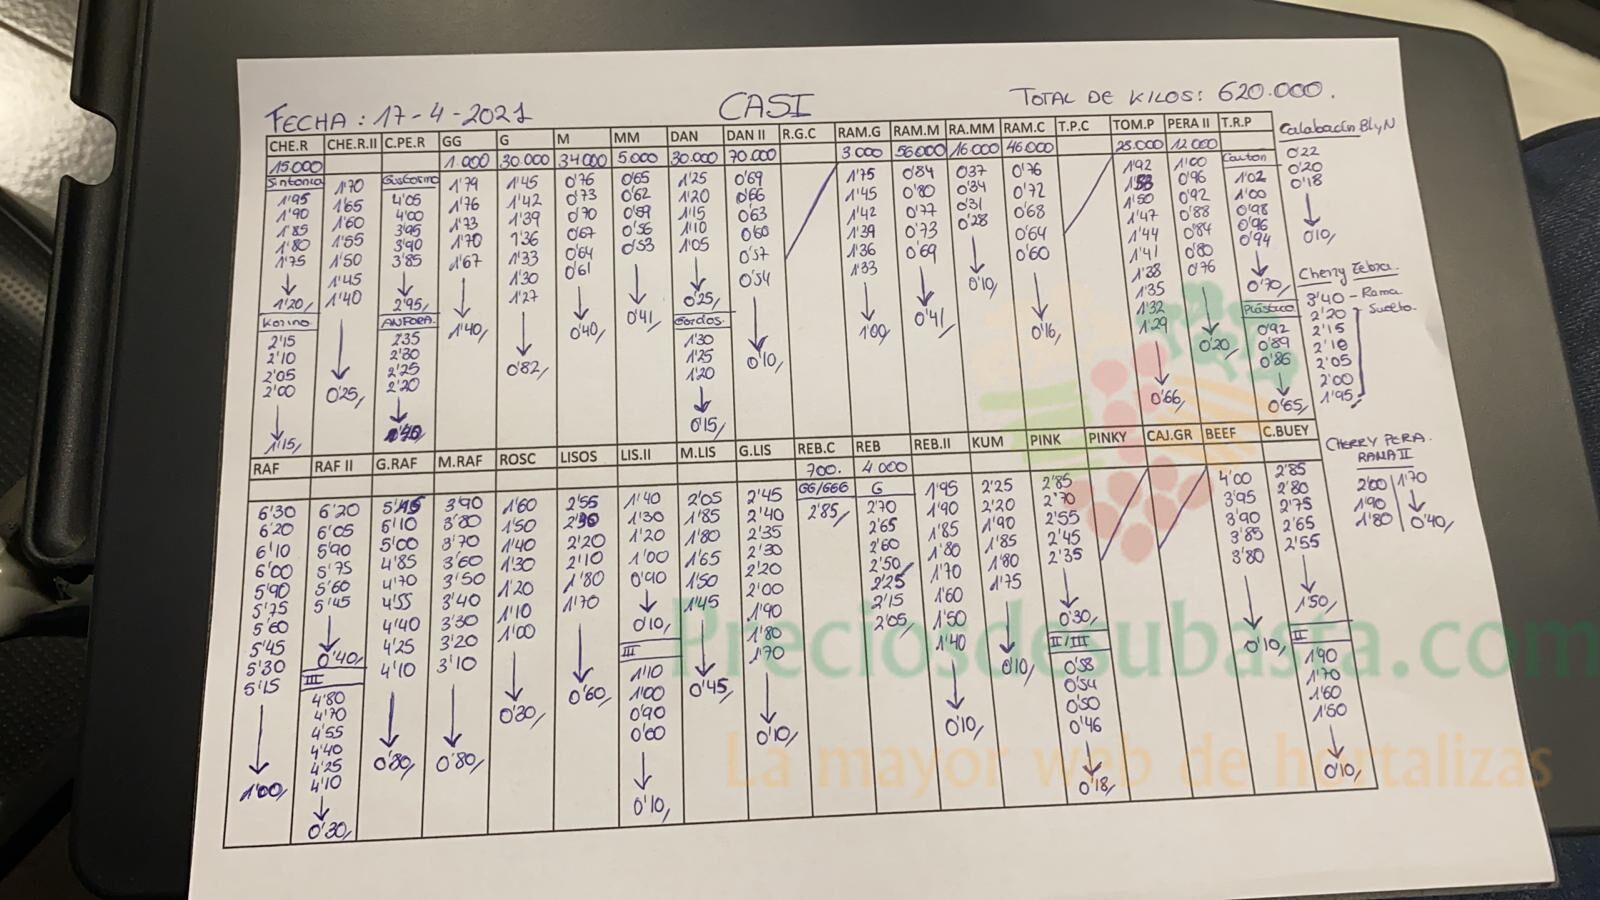 FECHA : 17-4-2021 CASI TOTAL DE KILOS: 620.000.
CHE.R CHE.R.II C.PE.R GG G M MM DAN DAN II R.G.C RAM.G RAM.M RA.MM RAM.C T.P.C TOM.P PERA II T.R.P
15.000 1.000 30.000 34000 5.000 30.000 70.000 3.000 56000 16.000 46.000 25.000 12.000
Sintonia
1'95
1'90
1'85
1'80
1'75
↓
1'20,
Kozino
2'15
2'10
2'05
2'00
↓
1'15,
1'70
1'65
1'60
1'55
1'50
1'45
1'40
↓
0'25,
4'05
4'00
3'95
3'90
3'85
↓
2'95,
ANFORA.
2'35
2'30
2'25
2'20
↓
1'79
1'76
1'73
1'70
1'67
↓
1'40,
1'45
1'42
1'39
1'36
1'33
1'30
1'27
↓
0'82,
0'76
0'73
0'70
0'67
0'64
0'61
↓
0'40,
0'65
0'62
0'59
0'56
0'53
↓
0'41,
1'25
1'20
1'15
1'10
1'05
↓
0'25,
Gordos.
1'30
1'25
1'20
↓
0'15,
0'69
0'66
0'63
0'60
0'57
0'54
↓
0'10,
1'75
1'45
1'42
1'39
1'36
1'33
↓
1'00,
0'84
0'80
0'77
0'73
0'69
↓
0'41,
0'37
0'34
0'31
0'28
↓
0'10,
0'76
0'72
0'68
0'64
0'60
↓
0'16,
1'92
1'53
1'50
1'47
1'44
1'41
1'38
1'35
1'32
1'29
↓
0'66,
1'00
0'96
0'92
0'88
0'84
0'80
0'76
↓
0'20,
Carton
1'02
1'00
0'98
0'96
0'94
↓
0'70,
Plástico
0'92
0'89
0'86
↓
0'65,
Calabacín BlyN
0'22
0'20
0'18
↓
0'10,
Cherry Zebra.
3'40 - Rama
2'20 Suelto.
2'15
2'10
2'05
2'00
1'95
CHERRY PERA.
RAMA II
2'00 1'70
1'90 ↓
1'80 0'40,
RAF RAF II G.RAF M.RAF ROSC LISOS LIS.II M.LIS G.LIS REB.C REB REB.II KUM PINK PINKY CAJ.GR BEEF C.BUEY
700. 4.000
6'30
6'20
6'10
6'00
5'90
5'75
5'60
5'45
5'30
5'15
↓
1'00,
6'20
6'05
5'90
5'75
5'60
5'45
↓
0'40,
III
4'80
4'70
4'55
4'40
4'25
4'10
↓
0'30,
6'10
5'00
4'85
4'70
4'55
4'40
4'25
4'10
↓
0'80,
3'90
3'80
3'70
3'60
3'50
3'40
3'30
3'20
3'10
↓
0'80,
1'60
1'50
1'40
1'30
1'20
1'10
1'00
↓
0'30,
2'55
2'30
2'20
2'10
1'80
1'70
↓
0'60,
1'40
1'30
1'20
1'00
0'90
↓
0'10,
III
1'10
1'00
0'90
0'60
↓
0'10,
2'05
1'85
1'80
1'65
1'50
1'45
↓
0'45,
2'45
2'40
2'35
2'30
2'20
2'00
1'90
1'80
1'70
↓
0'10,
GG/GGG
2'85,
G
2'70
2'65
2'60
2'50
2'25
2'15
2'05,
1'95
1'90
1'85
1'80
1'70
1'60
1'50
1'40
↓
0'10,
2'25
2'20
1'90
1'85
1'80
1'75
↓
0'10,
2'85
2'70
2'55
2'45
2'35
↓
0'30,
II/III
0'58
0'54
0'50
0'46
↓
0'18,
4'00
3'95
3'90
3'85
3'80
↓
0'10,
2'85
2'80
2'75
2'65
2'55
↓
1'50,
II
1'90
1'70
1'60
1'50
↓
0'10,
Preciosdesubasta.com
La mayor web de hortalizas